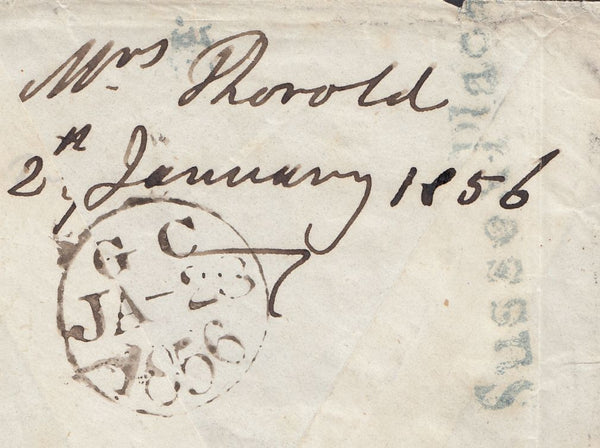 Mrs Thorold
2n January 1856
G C
JA-28
1856
Sussex Place